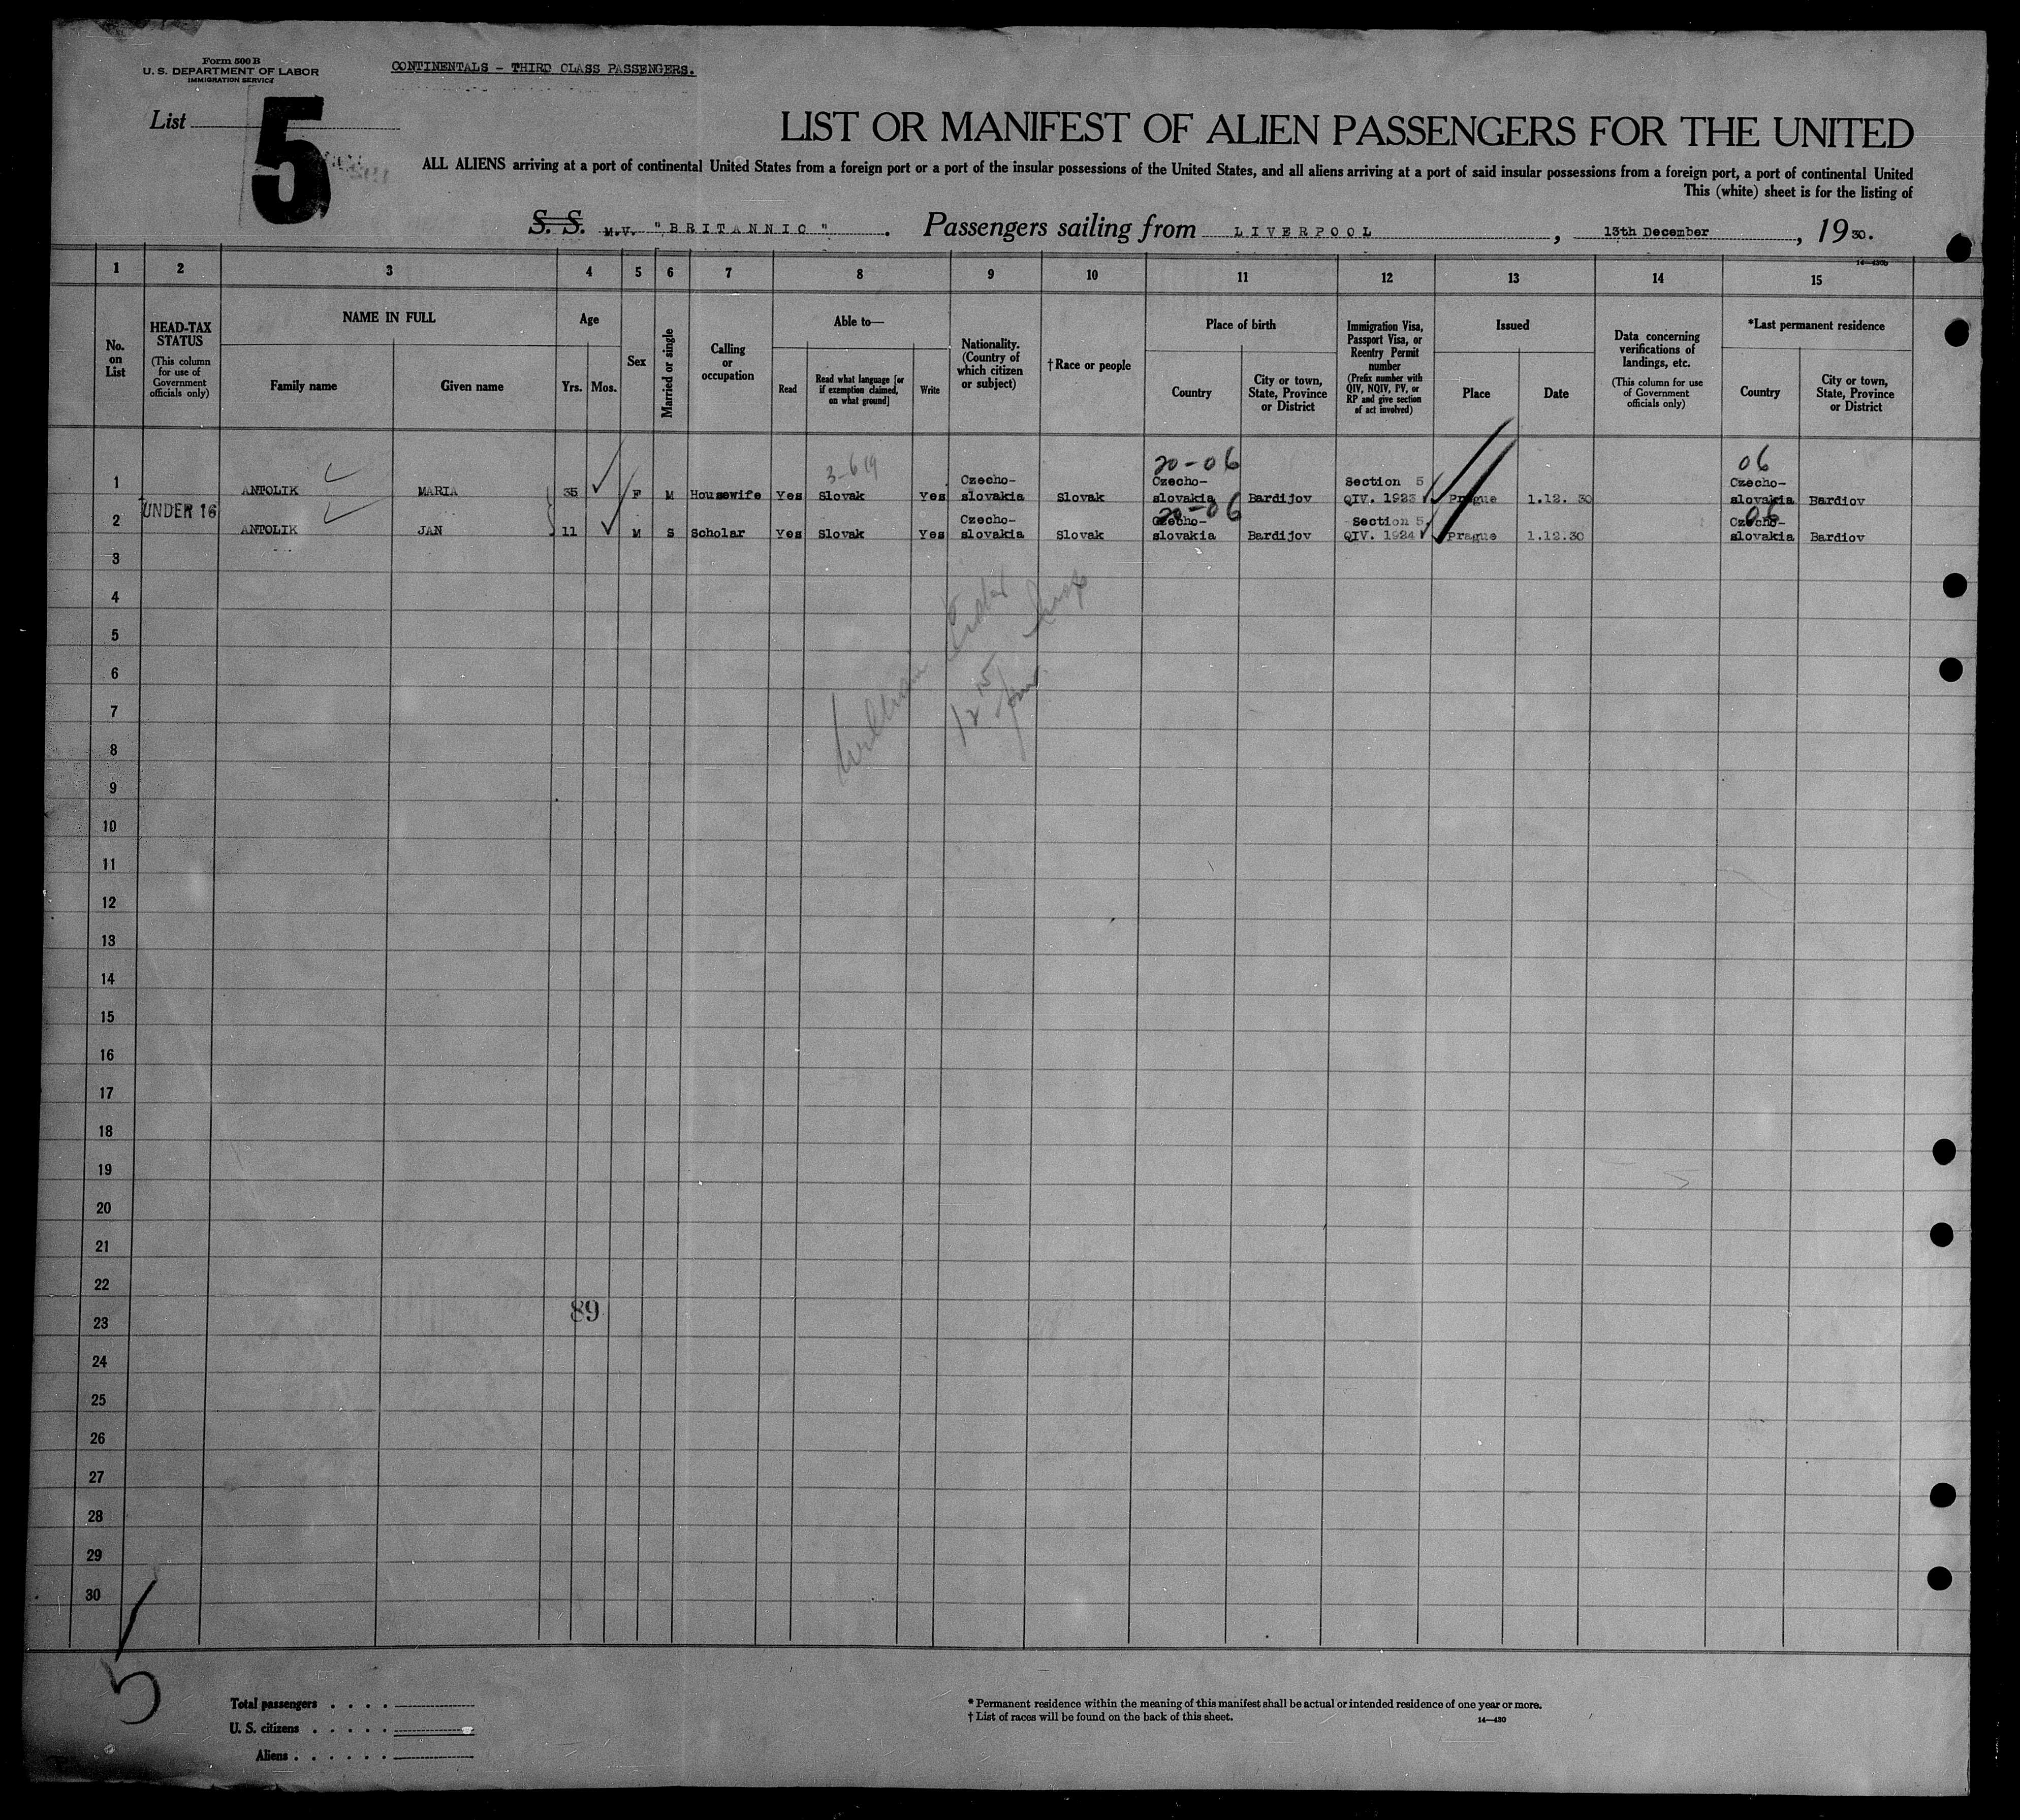 Form 500 B
U. S. DEPARTMENT OF LABOR
IMMIGRATION SERVICE
CONTINENTALS - THIRD CLASS PASSENGERS.
List 5
LIST OR MANIFEST OF ALIEN PASSENGERS FOR THE UNITED
ALL ALIENS arriving at a port of continental United States from a foreign port or a port of the insular possessions of the United States, and all aliens arriving at a port of said insular possessions from a foreign port, a port of continental United
This (white) sheet is for the listing of
S. S. M.V. "BRITANNIC". Passengers sailing from LIVERPOOL, 13th December, 1930.
14-430b
1 2 3 4 5 6 7 8 9 10 11 12 13 14 15
No. on List
HEAD-TAX STATUS
(This column for use of Government officials only)
NAME IN FULL
Family name
Given name
Age
Yrs. Mos.
Sex
Married or single
Calling or occupation
Able to—
Read
Read what language [or if exemption claimed, on what ground]
Write
Nationality. (Country of which citizen or subject)
†Race or people
Place of birth
Country
City or town, State, Province or District
Immigration Visa, Passport Visa, or Reentry Permit number
(Prefix number with QIV, NQIV, PV, or RP and give section of act involved)
Issued
Place
Date
Data concerning verifications of landings, etc.
(This column for use of Government officials only)
*Last permanent residence
Country
City or town, State, Province or District
3-619
20-06
06
1 ANTOLIK MARIA 35 F M Housewife Yes Slovak Yes Czecho-slovakia Slovak Czecho-slovakia Bardijov Section 5 QIV. 1923 Prague 1.12. 30 Czecho-slovakia Bardiov
UNDER 16
20-06
06
2 ANTOLIK JAN 11 M S Scholar Yes Slovak Yes Czecho-slovakia Slovak Czecho-slovakia Bardijov Section 5. QIV. 1924 Prague 1.12.30 Czecho-slovakia Bardiov
3
4
5
6
William
12 15 pm.
7
8
9
10
11
12
13
14
15
16
17
18
19
20
21
22
89
23
24
25
26
27
28
29
30
5
Total passengers . . . .
U. S. citizens . . . . .
Aliens . . . . . .
* Permanent residence within the meaning of this manifest shall be actual or intended residence of one year or more.
† List of races will be found on the back of this sheet.
14-430